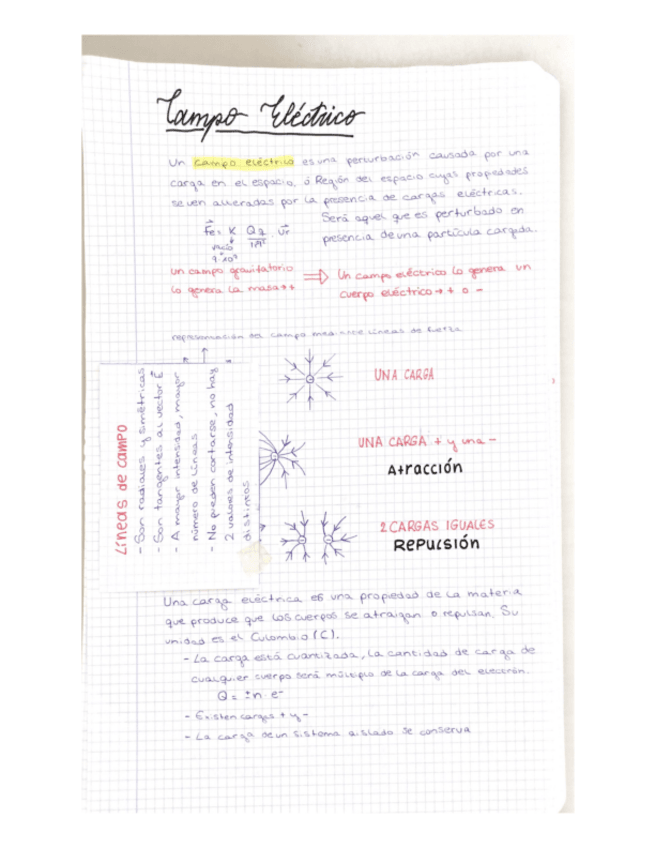 Campo Eléctrico
Un campo eléctrico es una perturbación causada por una
carga en el espacio, ó Región del espacio cuyas propiedades
se ven alteradas por la presencia de cargas eléctricas.
Será aquel que es perturbado en
presencia de una partícula cargada.
Fe = K Qq
vacío
9·10⁹
un campo gravitatorio
lo genera la masa ++
⇒ Un campo eléctrico lo genera un
cuerpo eléctrico → + o -
representación del campo mediante líneas de fuerza
UNA CARGA
UNA CARGA + y una -
Atracción
2 CARGAS IGUALES
REPULSIÓN
Líneas de campo
- Son radiales y simétricas
- Son tangentes al vector E
- A mayor intensidad, mayor
número de líneas
- No pueden cortarse, no hay
2 valores de intensidad
distintas
Una carga eléctrica es una propiedad de la materia
que produce que los cuerpos se atraigan o repulsan. Su
unidad es el Culombio (C).
- La carga está cuantizada, la cantidad de carga de
cualquier cuerpo será múltiplo de la carga del electrón.
Q = ±n · e⁻
- Existen cargas + y -
- La carga de un sistema aislado se conserva